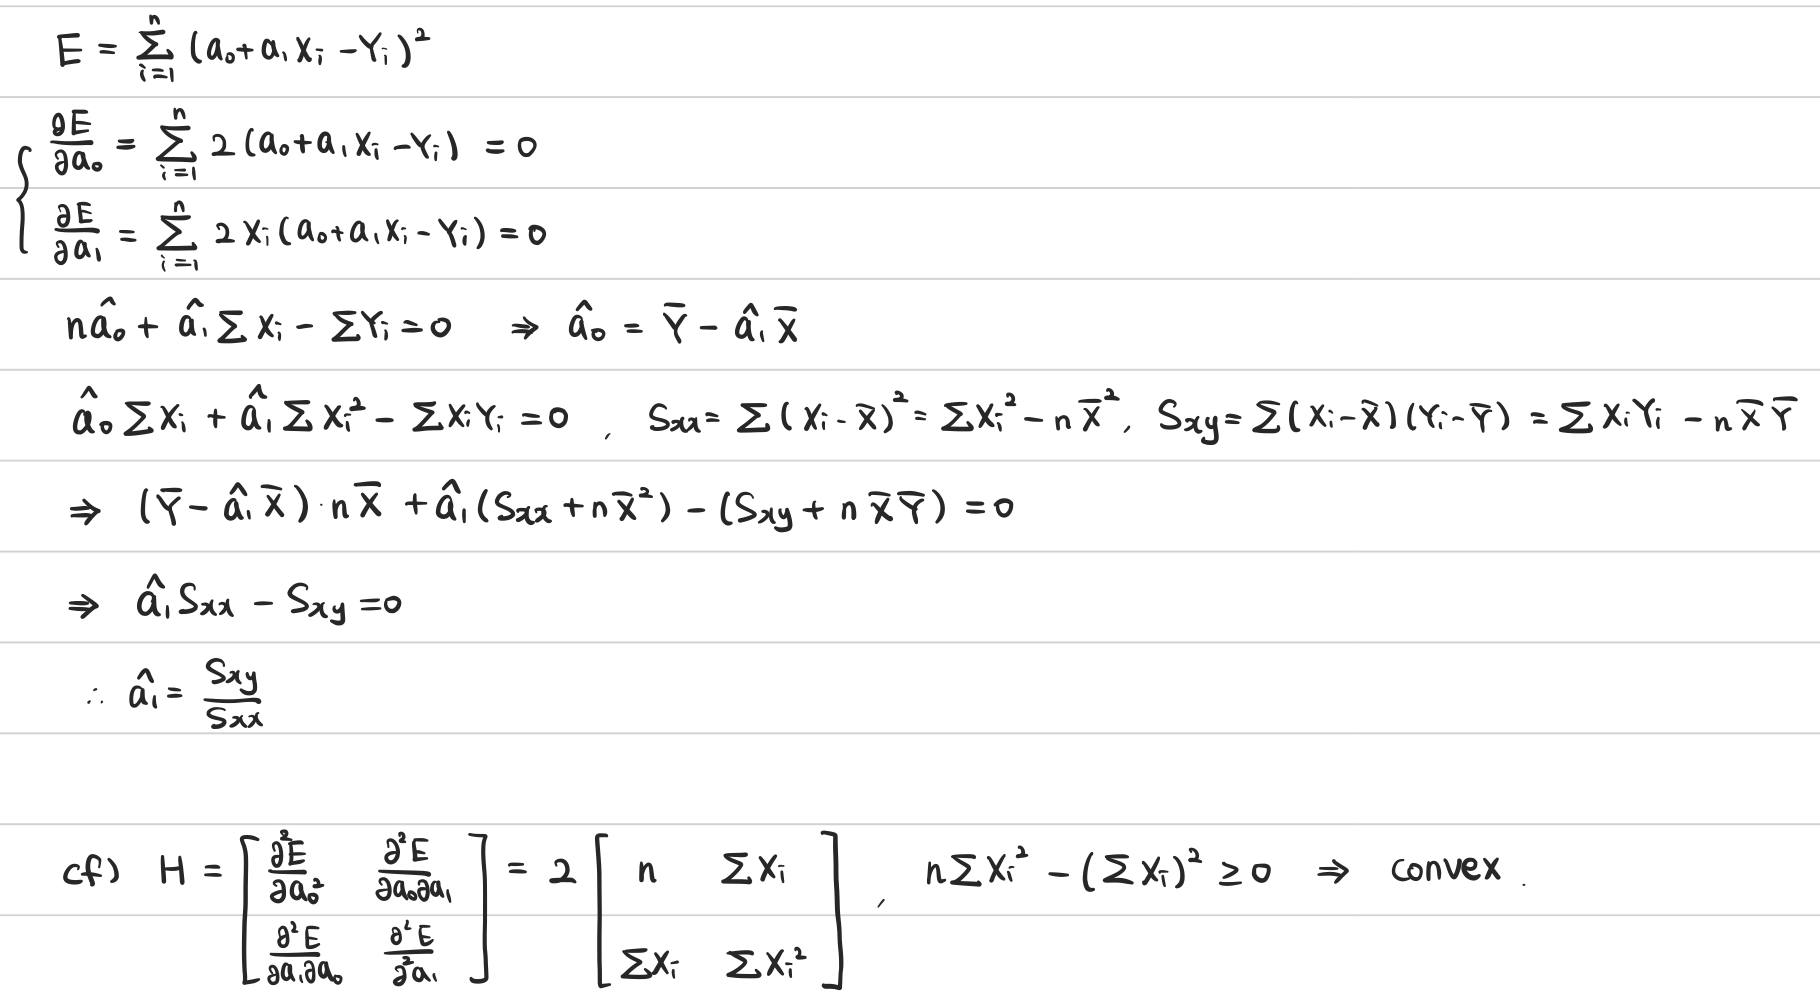 E = \sum_{i=1}^{n} (a_0 + a_1 X_i - Y_i)^2
\frac{\partial E}{\partial a_0} = \sum_{i=1}^{n} 2 (a_0 + a_1 X_i - Y_i) = 0
\frac{\partial E}{\partial a_1} = \sum_{i=1}^{n} 2 X_i (a_0 + a_1 X_i - Y_i) = 0
n\hat{a}_0 + \hat{a}_1 \sum X_i - \sum Y_i = 0 ⇒ \hat{a}_0 = \bar{Y} - \hat{a}_1 \bar{X}
\hat{a}_0 \sum X_i + \hat{a}_1 \sum X_i^2 - \sum X_i Y_i = 0 , S_{xx} = \sum (X_i - \bar{X})^2 = \sum X_i^2 - n\bar{X}^2, S_{xy} = \sum (X_i - \bar{X})(Y_i - \bar{Y}) = \sum X_i Y_i - n\bar{X}\bar{Y}
⇒ (\bar{Y} - \hat{a}_1 \bar{X}) \cdot n\bar{X} + \hat{a}_1 (S_{xx} + n\bar{X}^2) - (S_{xy} + n\bar{X}\bar{Y}) = 0
⇒ \hat{a}_1 S_{xx} - S_{xy} = 0
∴ \hat{a}_1 = \frac{S_{xy}}{S_{xx}}
cf) H = \begin{bmatrix} \frac{\partial^2 E}{\partial a_0^2} & \frac{\partial^2 E}{\partial a_0 \partial a_1} \\ \frac{\partial^2 E}{\partial a_1 \partial a_0} & \frac{\partial^2 E}{\partial^2 a_1} \end{bmatrix} = 2 \begin{bmatrix} n & \sum X_i \\ \sum X_i & \sum X_i^2 \end{bmatrix} , n\sum X_i^2 - (\sum X_i)^2 ≥ 0 ⇒ convex .